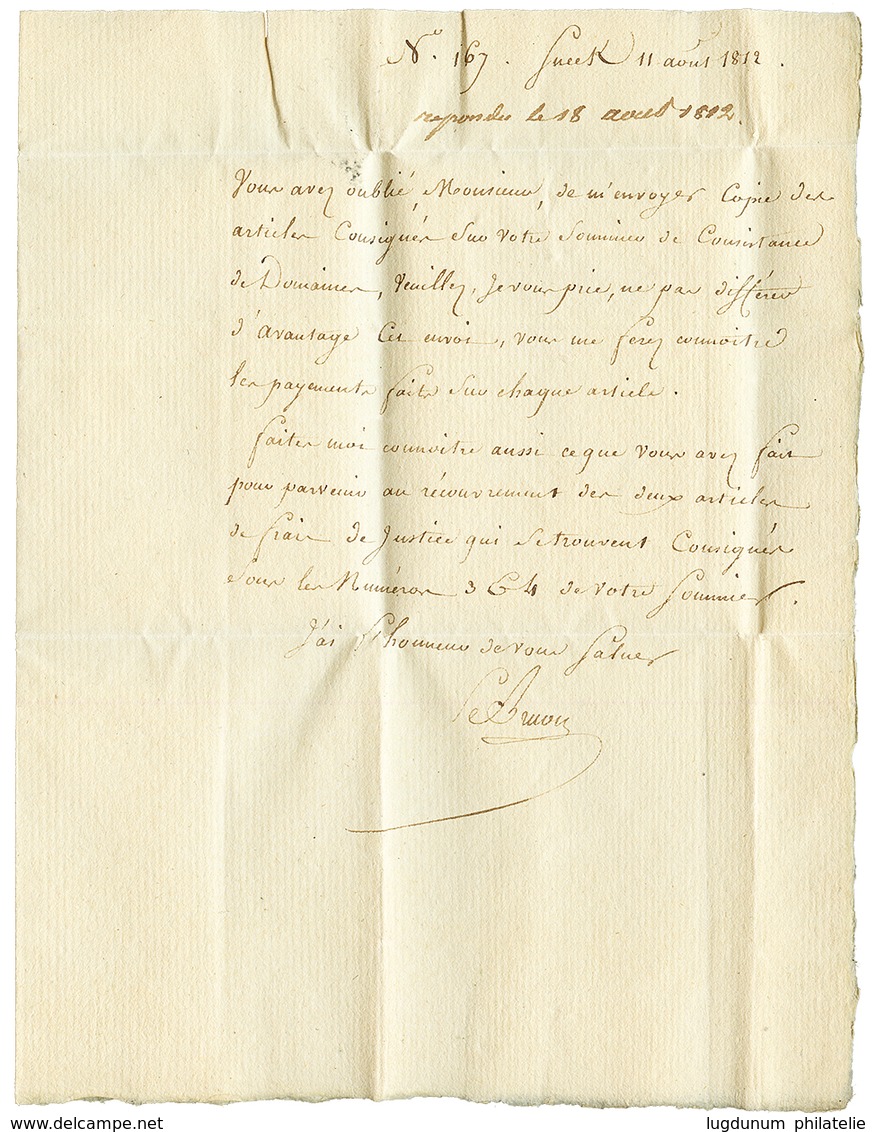 N.° 167. Sneek 11 août 1812.
repondu le 18 aout 1812.
Vous avez oublié, Monsieur, de m'envoyer Copie des
articles Consignés Sur Votre Sommier de Consistance
de Domaines, Veuillez, Je vous prie, ne pas différer
d'avantage cet envoi, vous me ferez connoitre
les payements faits Sur chaque article.
faites moi connoitre aussi ce que vous avez fait
pour parvenir au récouvrement des deux articles
de frais de Justice qui se trouvent Consignés
Sous les Numéros 3 & 4 de votre Sommier.
J'ai l'honneur de vous Saluer
lugdunum philatelie